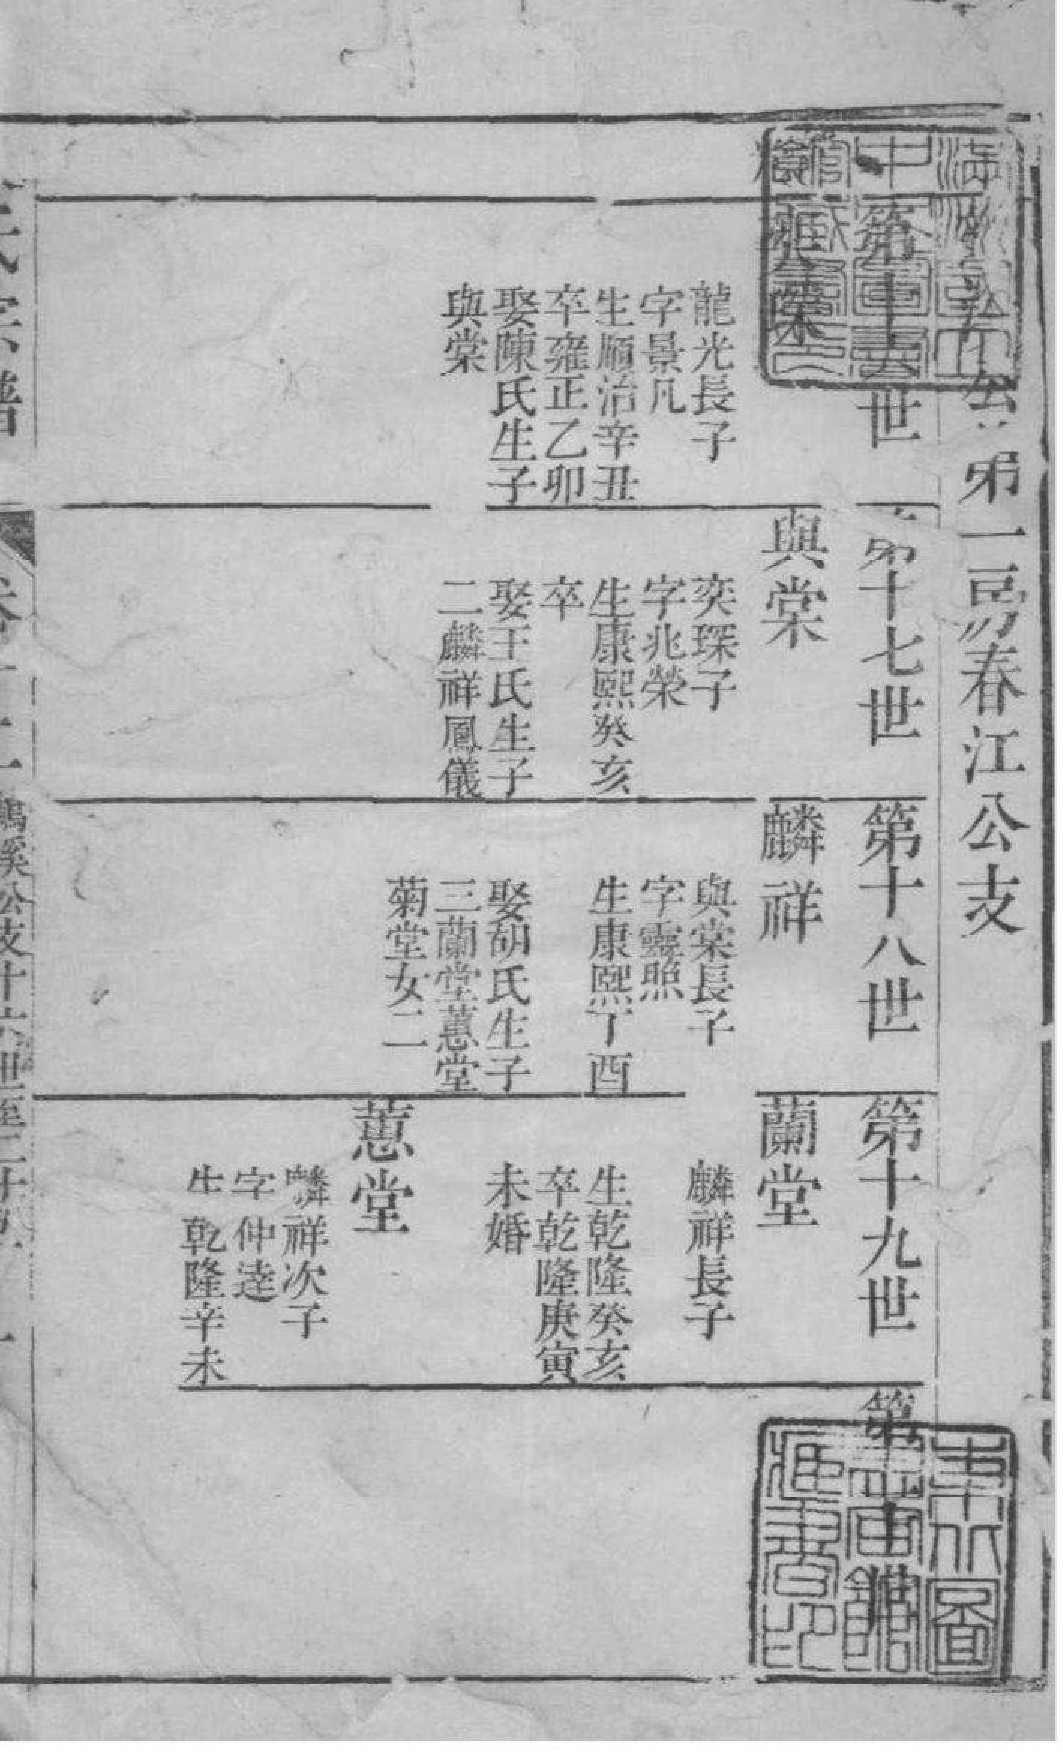 公第一房春江公支
第十六世
奕琛
龍光長子
字景凡
生順治辛丑
卒雍正乙卯
娶陳氏生子
與棠
第十七世
與棠
奕琛子
字兆榮
生康熙癸亥
卒
娶王氏生子
二麟祥鳳儀
第十八世
麟祥
與棠長子
字靈照
生康熙丁酉
娶胡氏生子
三蘭堂蕙堂
菊堂女二
第十九世
蘭堂
麟祥長子
生乾隆癸亥
卒乾隆庚寅
未婚
蕙堂
麟祥次子
字仲逵
生乾隆辛未
第二十世
氏宗譜
卷十二
鶴溪公支十六世至二十